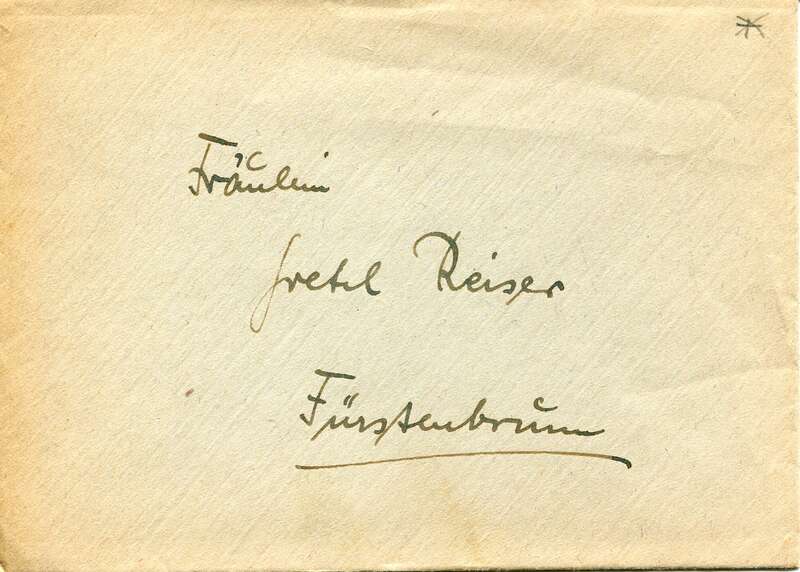 Fräulein
Gretel Reiser
Fürstenbrunn